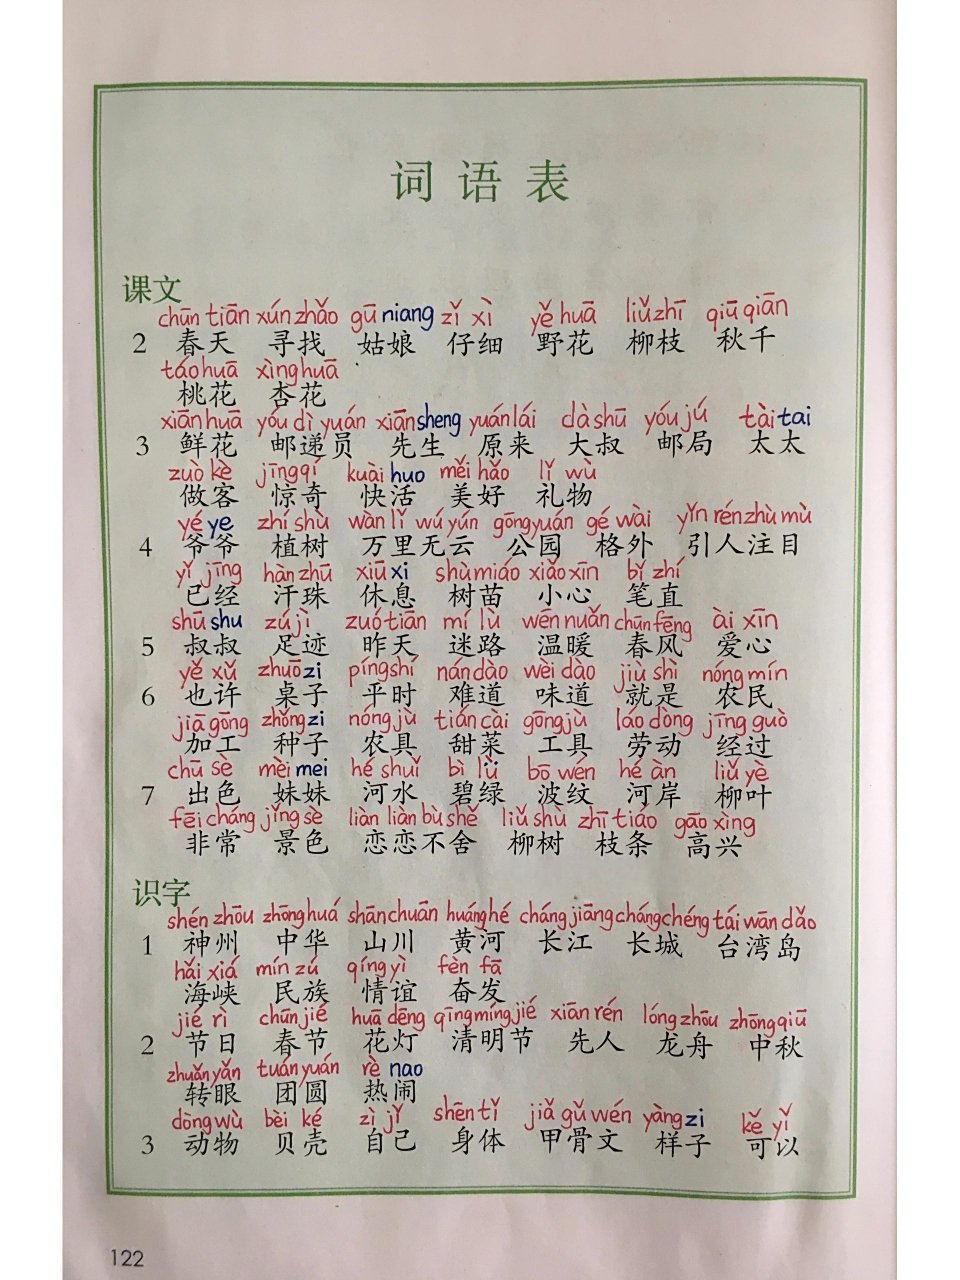 词语表
课文
chūn tiān xún zhǎo gū niang zǐ xì yě huā liǔ zhī qiū qiān
2 春天 寻找 姑娘 仔细 野花 柳枝 秋千
táo huā xìng huā
桃花 杏花
xiān huā yóu dì yuán xiān sheng yuán lái dà shū yóu jú tài tai
3 鲜花 邮递员 先生 原来 大叔 邮局 太太
zuò kè jīng qí kuài huo měi hǎo lǐ wù
做客 惊奇 快活 美好 礼物
yé ye zhí shù wàn lǐ wú yún gōng yuán gé wài yǐn rén zhù mù
4 爷爷 植树 万里无云 公园 格外 引人注目
yǐ jīng hàn zhū xiū xi shù miáo xiǎo xīn bǐ zhí
已经 汗珠 休息 树苗 小心 笔直
shū shu zú jì zuó tiān mí lù wēn nuǎn chūn fēng ài xīn
5 叔叔 足迹 昨天 迷路 温暖 春风 爱心
yě xǔ zhuō zi píng shí nán dào wèi dào jiù shì nóng mín
6 也许 桌子 平时 难道 味道 就是 农民
jiā gōng zhǒng zi nóng jù tián cài gōng jù láo dòng jīng guò
加工 种子 农具 甜菜 工具 劳动 经过
chū sè mèi mei hé shuǐ bì lǜ bō wén hé àn liǔ yè
7 出色 妹妹 河水 碧绿 波纹 河岸 柳叶
fēi cháng jǐng sè liàn liàn bù shě liǔ shù zhī tiáo gāo xìng
非常 景色 恋恋不舍 柳树 枝条 高兴
识字
shén zhōu zhōng huá shān chuān huáng hé cháng jiāng cháng chéng tái wān dǎo
1 神州 中华 山川 黄河 长江 长城 台湾岛
hǎi xiá mín zú qíng yì fèn fā
海峡 民族 情谊 奋发
jié rì chūn jié huā dēng qīng míng jié xiān rén lóng zhōu zhōng qiū
2 节日 春节 花灯 清明节 先人 龙舟 中秋
zhuǎn yǎn tuán yuán rè nao
转眼 团圆 热闹
dòng wù bèi ké zì jǐ shēn tǐ jiǎ gǔ wén yàng zi kě yǐ
3 动物 贝壳 自己 身体 甲骨文 样子 可以
122